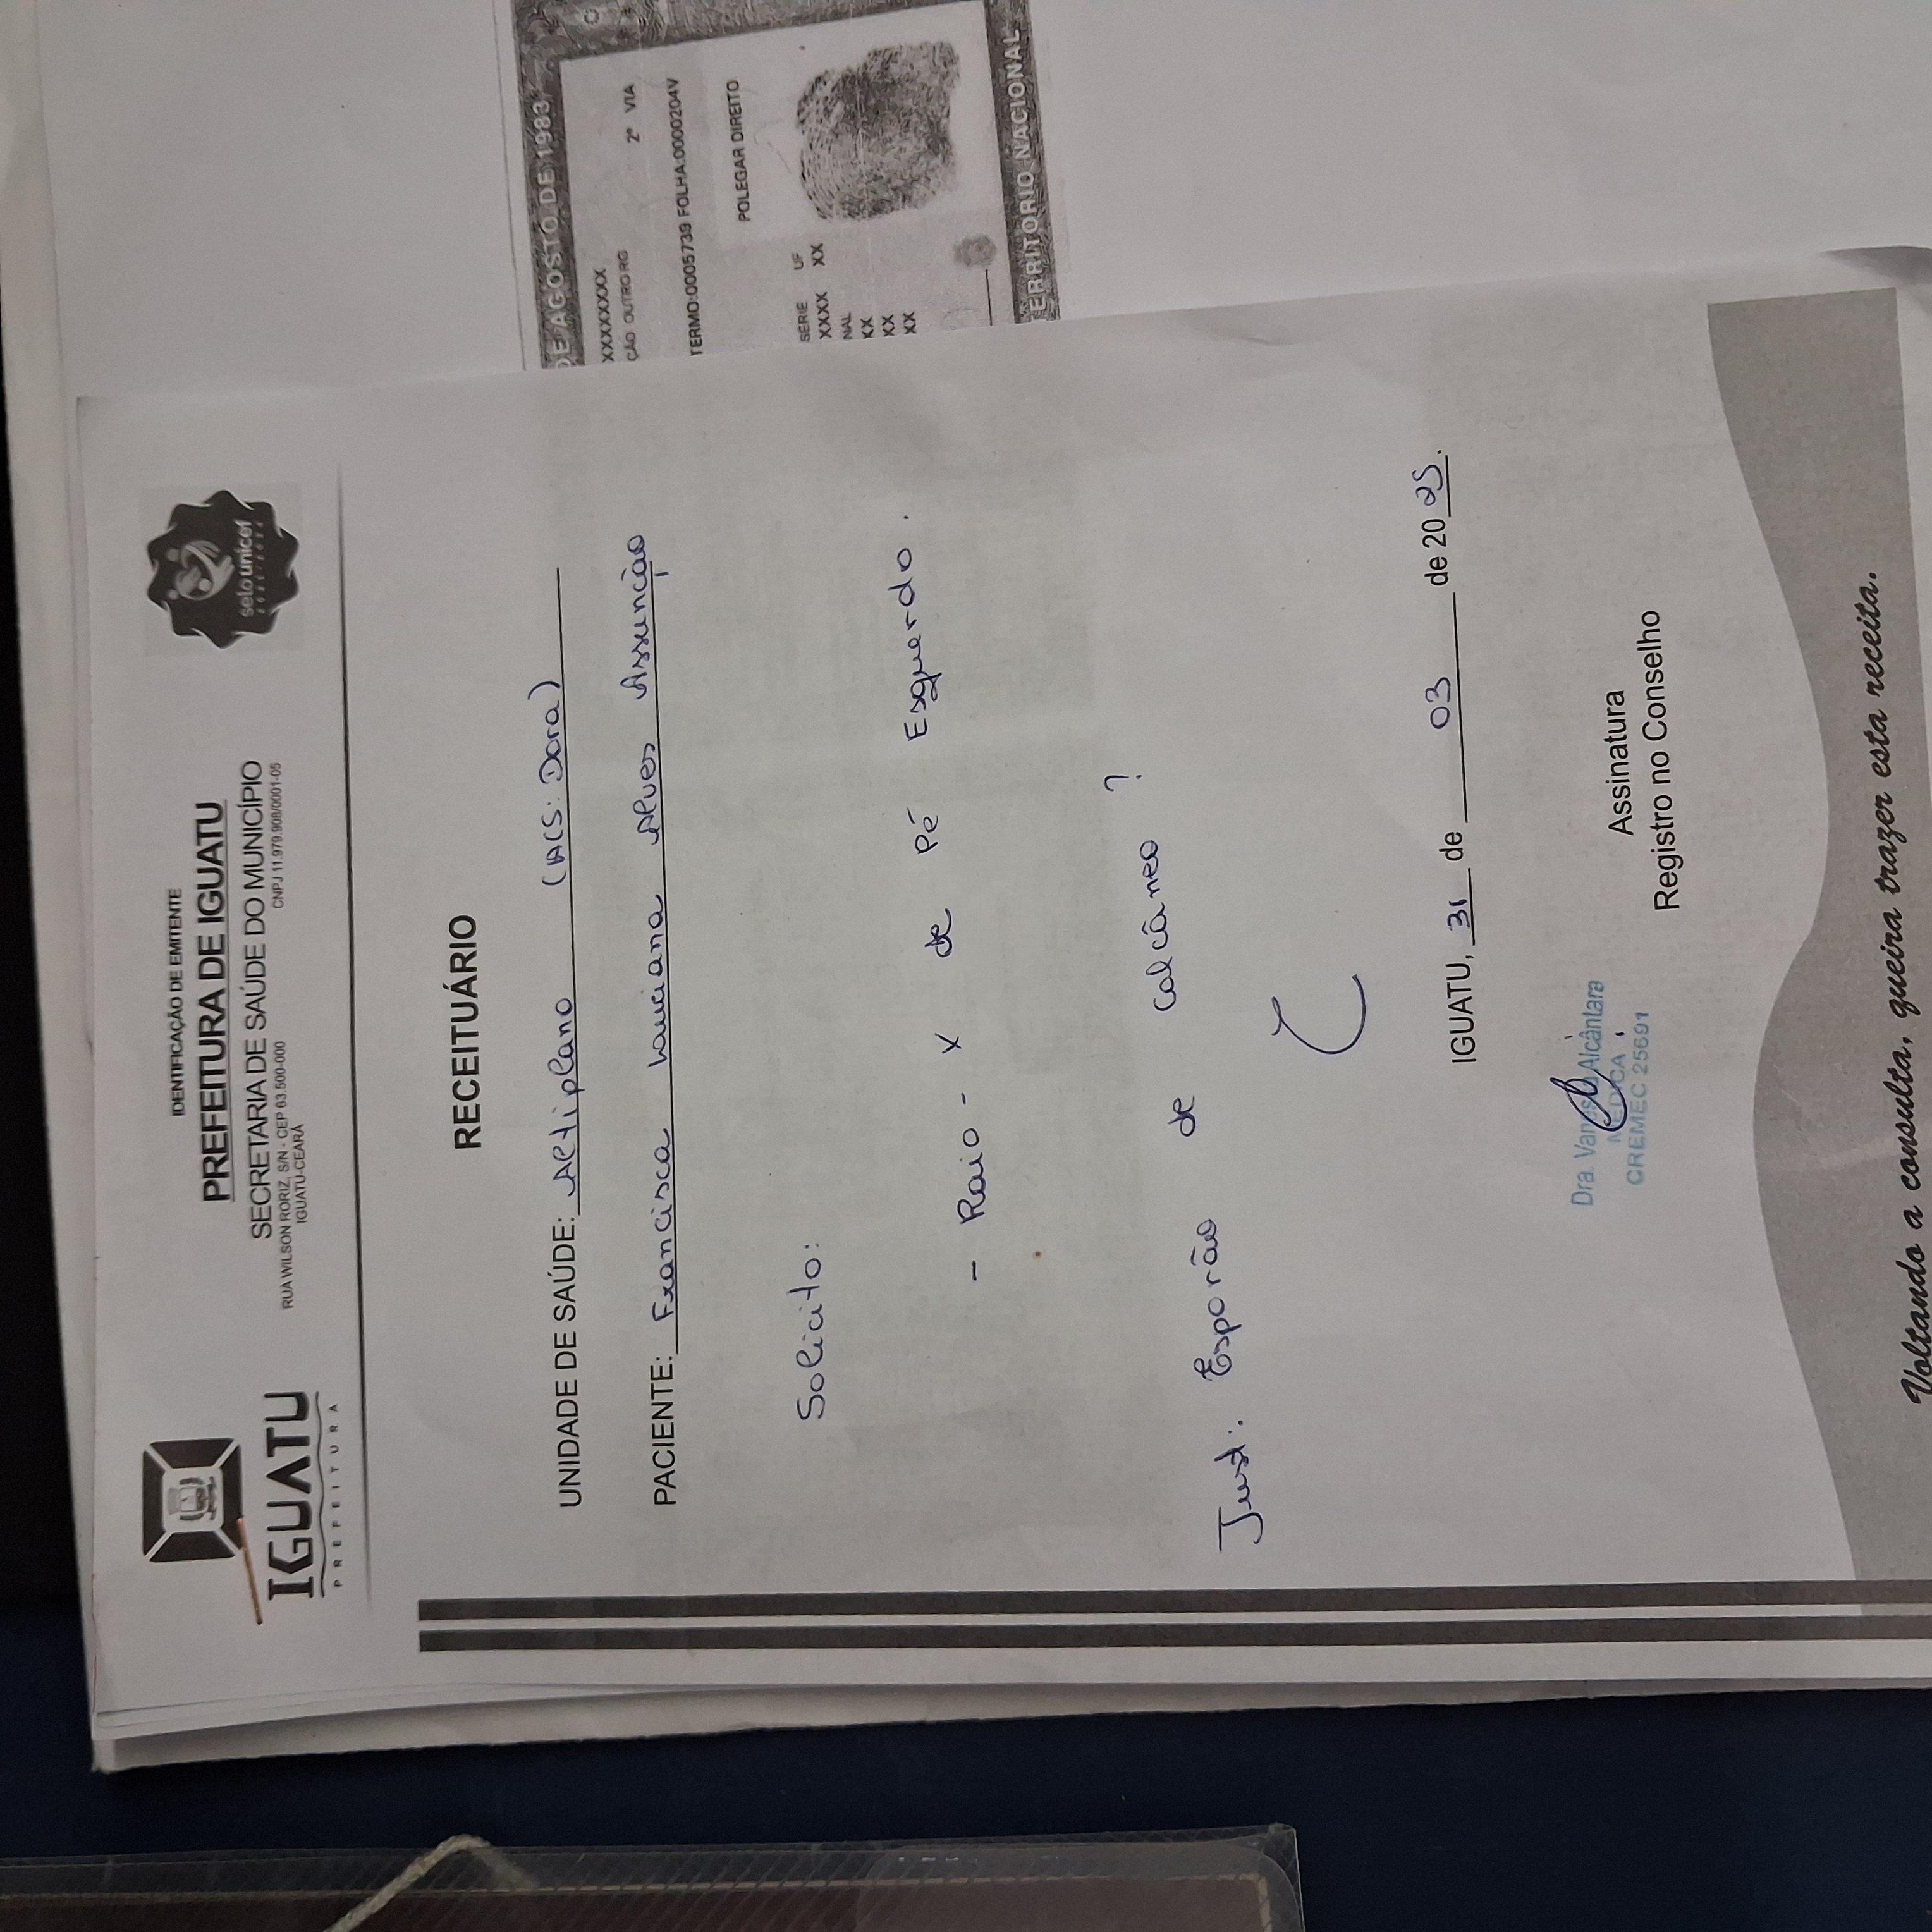 IDENTIFICAÇÃO DE EMITENTE
PREFEITURA DE IGUATU
SECRETARIA DE SAÚDE DO MUNICÍPIO
RUA WILSON RORIZ, S/N - CEP 63.500-000 CNPJ 11.979.908/0001-05
IGUATU-CEARÁ
IGUATU
PREFEITURA
selo unicef
RECEITUÁRIO
UNIDADE DE SAÚDE: Altiplano (ACS: Dora)
PACIENTE: Francisca Lauciana Alves Assunção
Solicito:
- Raio - X de Pé Esquerdo.
Just: Esporão de calcâneo ?
IGUATU, 31 de 03 de 2025.
Dra. Vanessa Alcântara
MÉDICA
CREMEC 25691
Assinatura
Registro no Conselho
Voltando a consulta, queira trazer esta receita.
DE AGOSTO DE 1983
XXXXXXXX
ÇÃO OUTRO RG
2ª VIA
TERMO:0005739 FOLHA:0000204V
POLEGAR DIREITO
SÉRIE UF
XXXX XX
NAL
XX
XX
XX
TERRITÓRIO NACIONAL